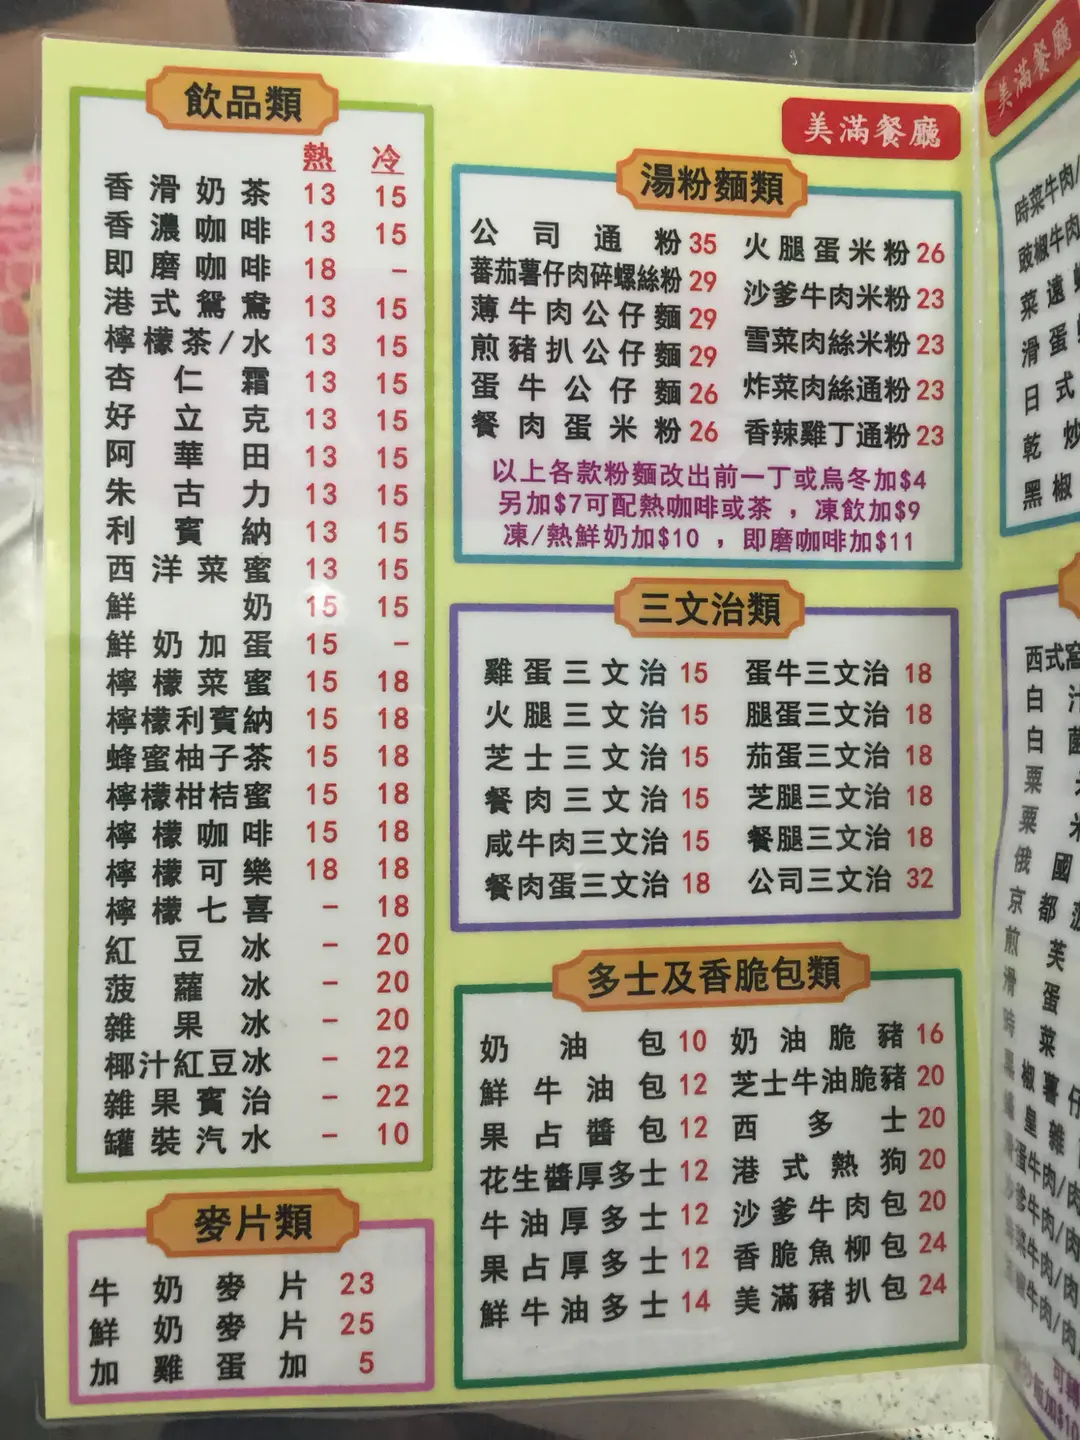 飲品類
熱 冷
香滑奶茶 13 15
香濃咖啡 13 15
即磨咖啡 18 -
港式鴛鴦 13 15
檸檬茶/水 13 15
杏仁霜 13 15
好立克 13 15
阿華田 13 15
朱古力 13 15
利賓納 13 15
西洋菜蜜 13 15
鮮奶 15 15
鮮奶加蛋 15 -
檸檬菜蜜 15 18
檸檬利賓納 15 18
蜂蜜柚子茶 15 18
檸檬柑桔蜜 15 18
檸檬咖啡 15 18
檸檬可樂 18 18
檸檬七喜 - 18
紅豆冰 - 20
菠蘿冰 - 20
雜果冰 - 20
椰汁紅豆冰 - 22
雜果賓治 - 22
罐裝汽水 - 10
麥片類
牛奶麥片 23
鮮奶麥片 25
加雞蛋加 5
美滿餐廳
湯粉麵類
公司通粉 35 火腿蛋米粉 26
蕃茄薯仔肉碎螺絲粉 29 沙爹牛肉米粉 23
薄牛肉公仔麵 29 雪菜肉絲米粉 23
煎豬扒公仔麵 29 炸菜肉絲通粉 23
蛋牛公仔麵 26 香辣雞丁通粉 23
餐肉蛋米粉 26
以上各款粉麵改出前一丁或烏冬加$4
另加$7可配熱咖啡或茶，凍飲加$9
凍/熱鮮奶加$10，即磨咖啡加$11
三文治類
雞蛋三文治 15 蛋牛三文治 18
火腿三文治 15 腿蛋三文治 18
芝士三文治 15 茄蛋三文治 18
餐肉三文治 15 芝腿三文治 18
咸牛肉三文治 15 餐腿三文治 18
餐肉蛋三文治 18 公司三文治 32
多士及香脆包類
奶油包 10 奶油脆豬 16
鮮牛油包 12 芝士牛油脆豬 20
果占醬包 12 西多士 20
花生醬厚多士 12 港式熱狗 20
牛油厚多士 12 沙爹牛肉包 20
果占厚多士 12 香脆魚柳包 24
鮮牛油多士 14 美滿豬扒包 24
美滿餐廳
時菜牛肉/
豉椒牛肉
菜遠
滑蛋
日式
乾炒
黑椒
西式
白汁
白菌
粟
粟米
俄國
京都
煎芙
滑蛋
時菜